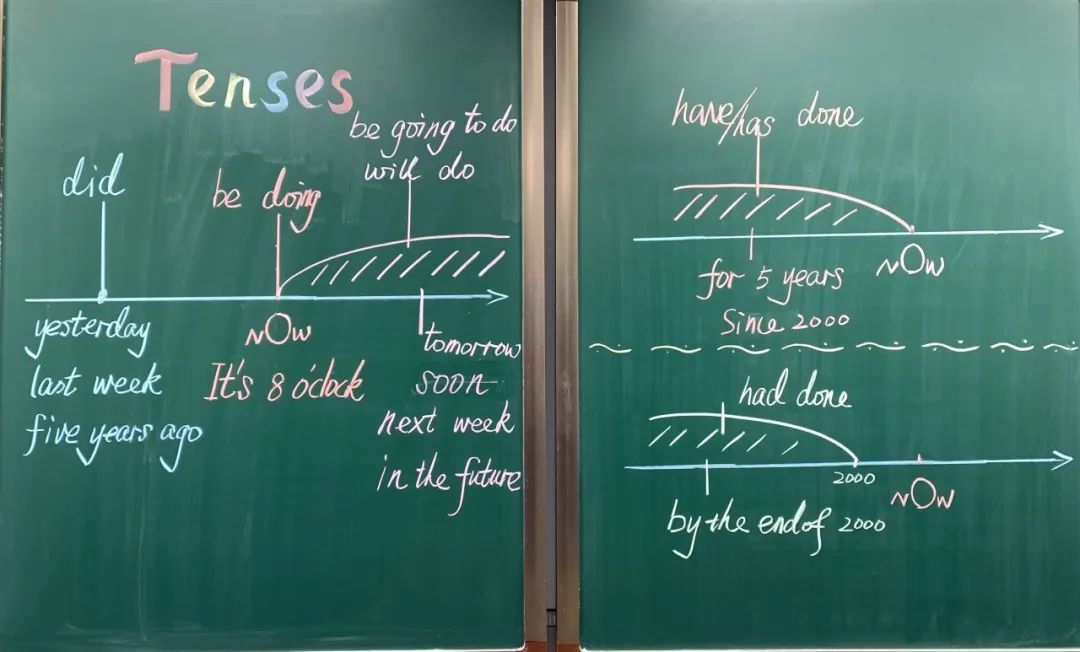 Tenses
be going to do
will do
did
be doing
yesterday
last week
five years ago
nOw
It's 8 o'clock
tomorrow
soon
next week
in the future
have/has done
for 5 years
Since 2000
nOw
had done
2000
nOw
by the end of 2000